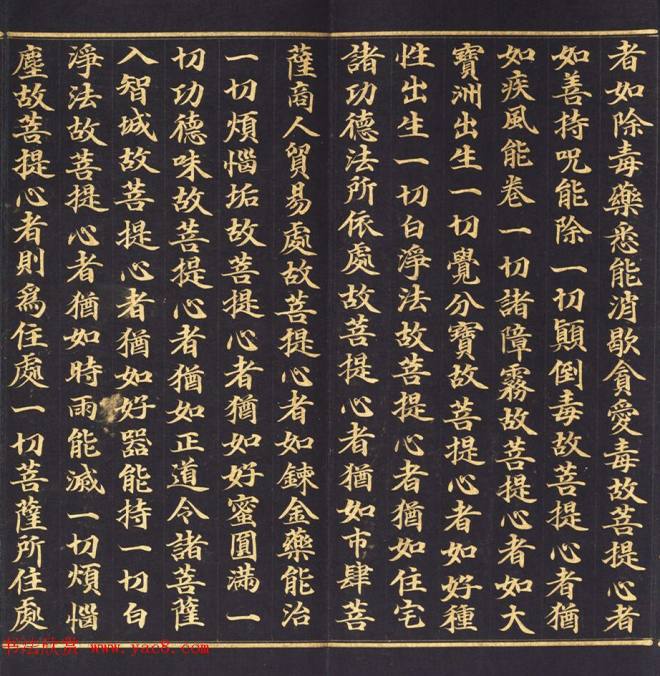 者如除毒藥悉能消歇貪愛毒故菩提心者
如善持呪能除一切顛倒毒故菩提心者猶
如疾風能卷一切諸障霧故菩提心者如大
寶洲出生一切覺分寶故菩提心者如好種
性出生一切白淨法故菩提心者猶如住宅
諸功德法所依處故菩提心者猶如市肆菩
薩商人貿易處故菩提心者如鍊金藥能治
一切煩惱垢故菩提心者猶如好蜜圓滿一
切功德味故菩提心者猶如正道令諸菩薩
入智城故菩提心者猶如好器能持一切白
淨法故菩提心者猶如時雨能滅一切煩惱
塵故菩提心者則為住處一切菩薩所住處
书法欣赏 www.yac8.com